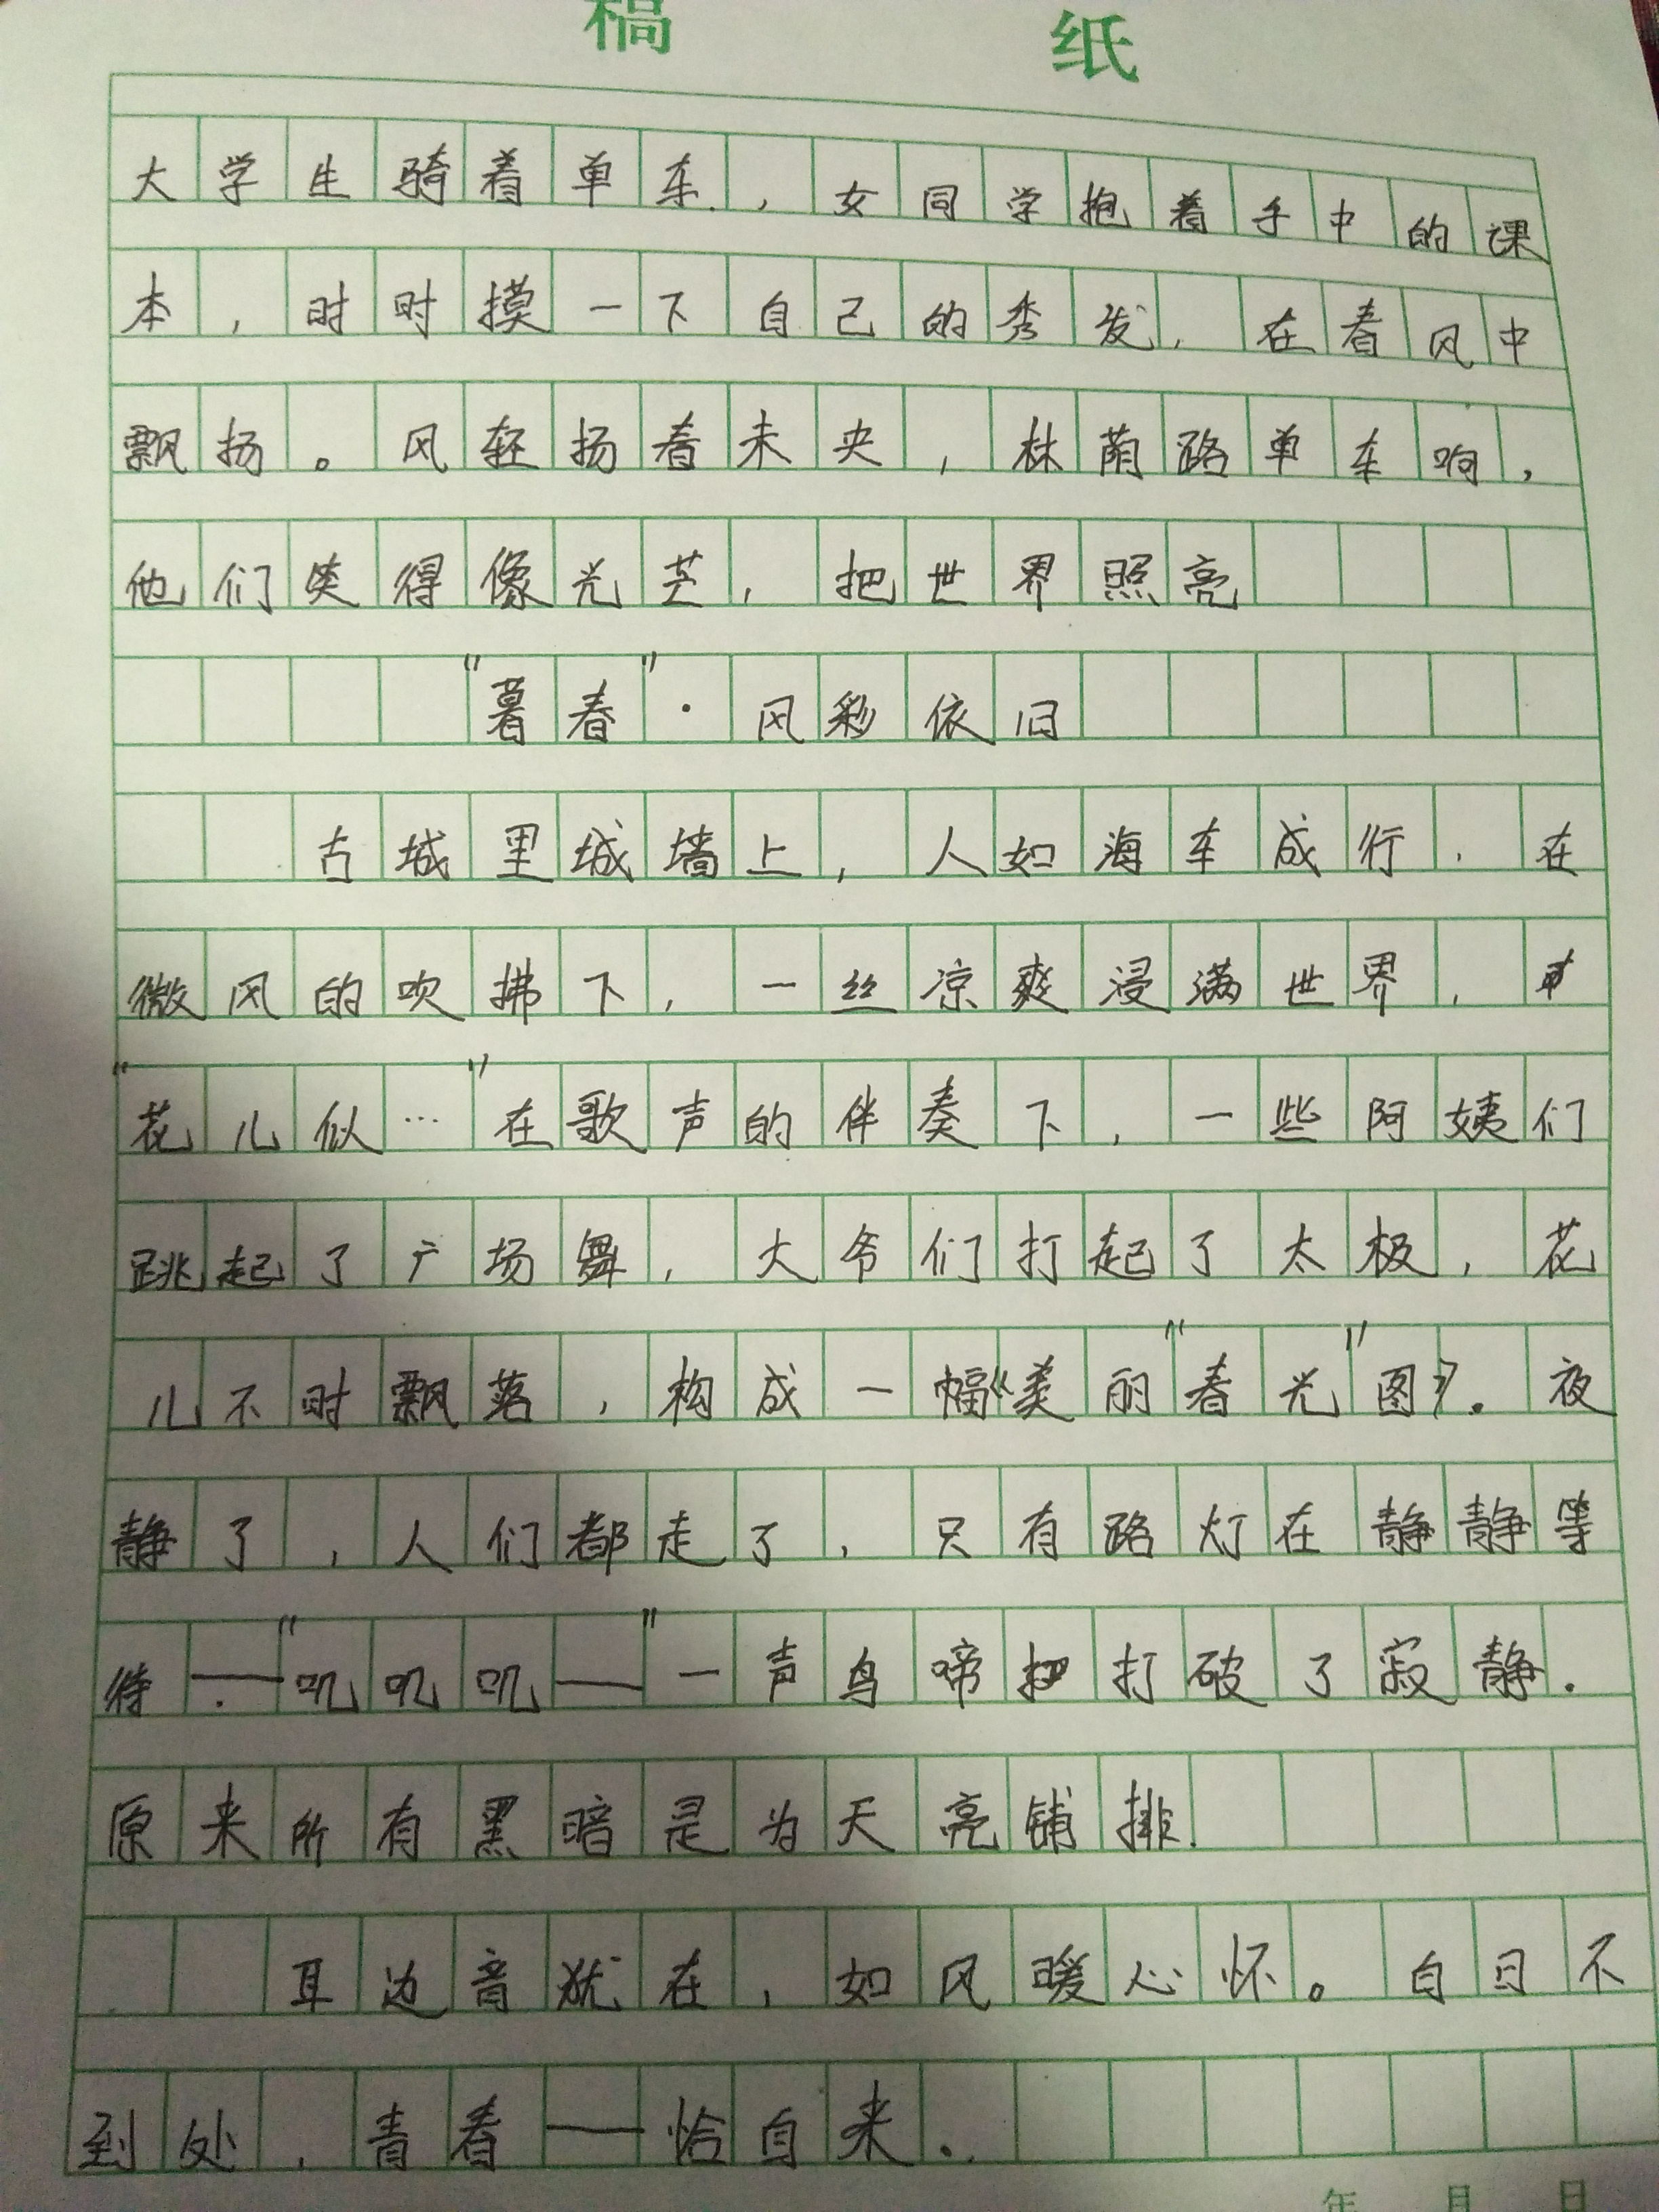 稿 纸
大学生骑着单车，女同学抱着手中的课
本，时时摸一下自己的秀发，在春风中
飘扬。风轻扬着未央，林荫路单车响，
他们笑得像光芒，把世界照亮
"暮春"·风彩依旧
古城里城墙上，人如海车成行，在
微风的吹拂下，一丝凉爽浸满世界，
"花儿似…"在歌声的伴奏下，一些阿姨们
跳起了广场舞，大爷们打起了太极，花
儿不时飘落，构成一幅《美丽"春光"图》。夜
静了，人们都走了，只有路灯在静静等
待——"叽叽叽——"一声鸟啼打破了寂静.
原来所有黑暗是为天亮铺排.
耳边音犹在，如风暖心怀。白日不
到处，青春——恰自来.
年 月 日